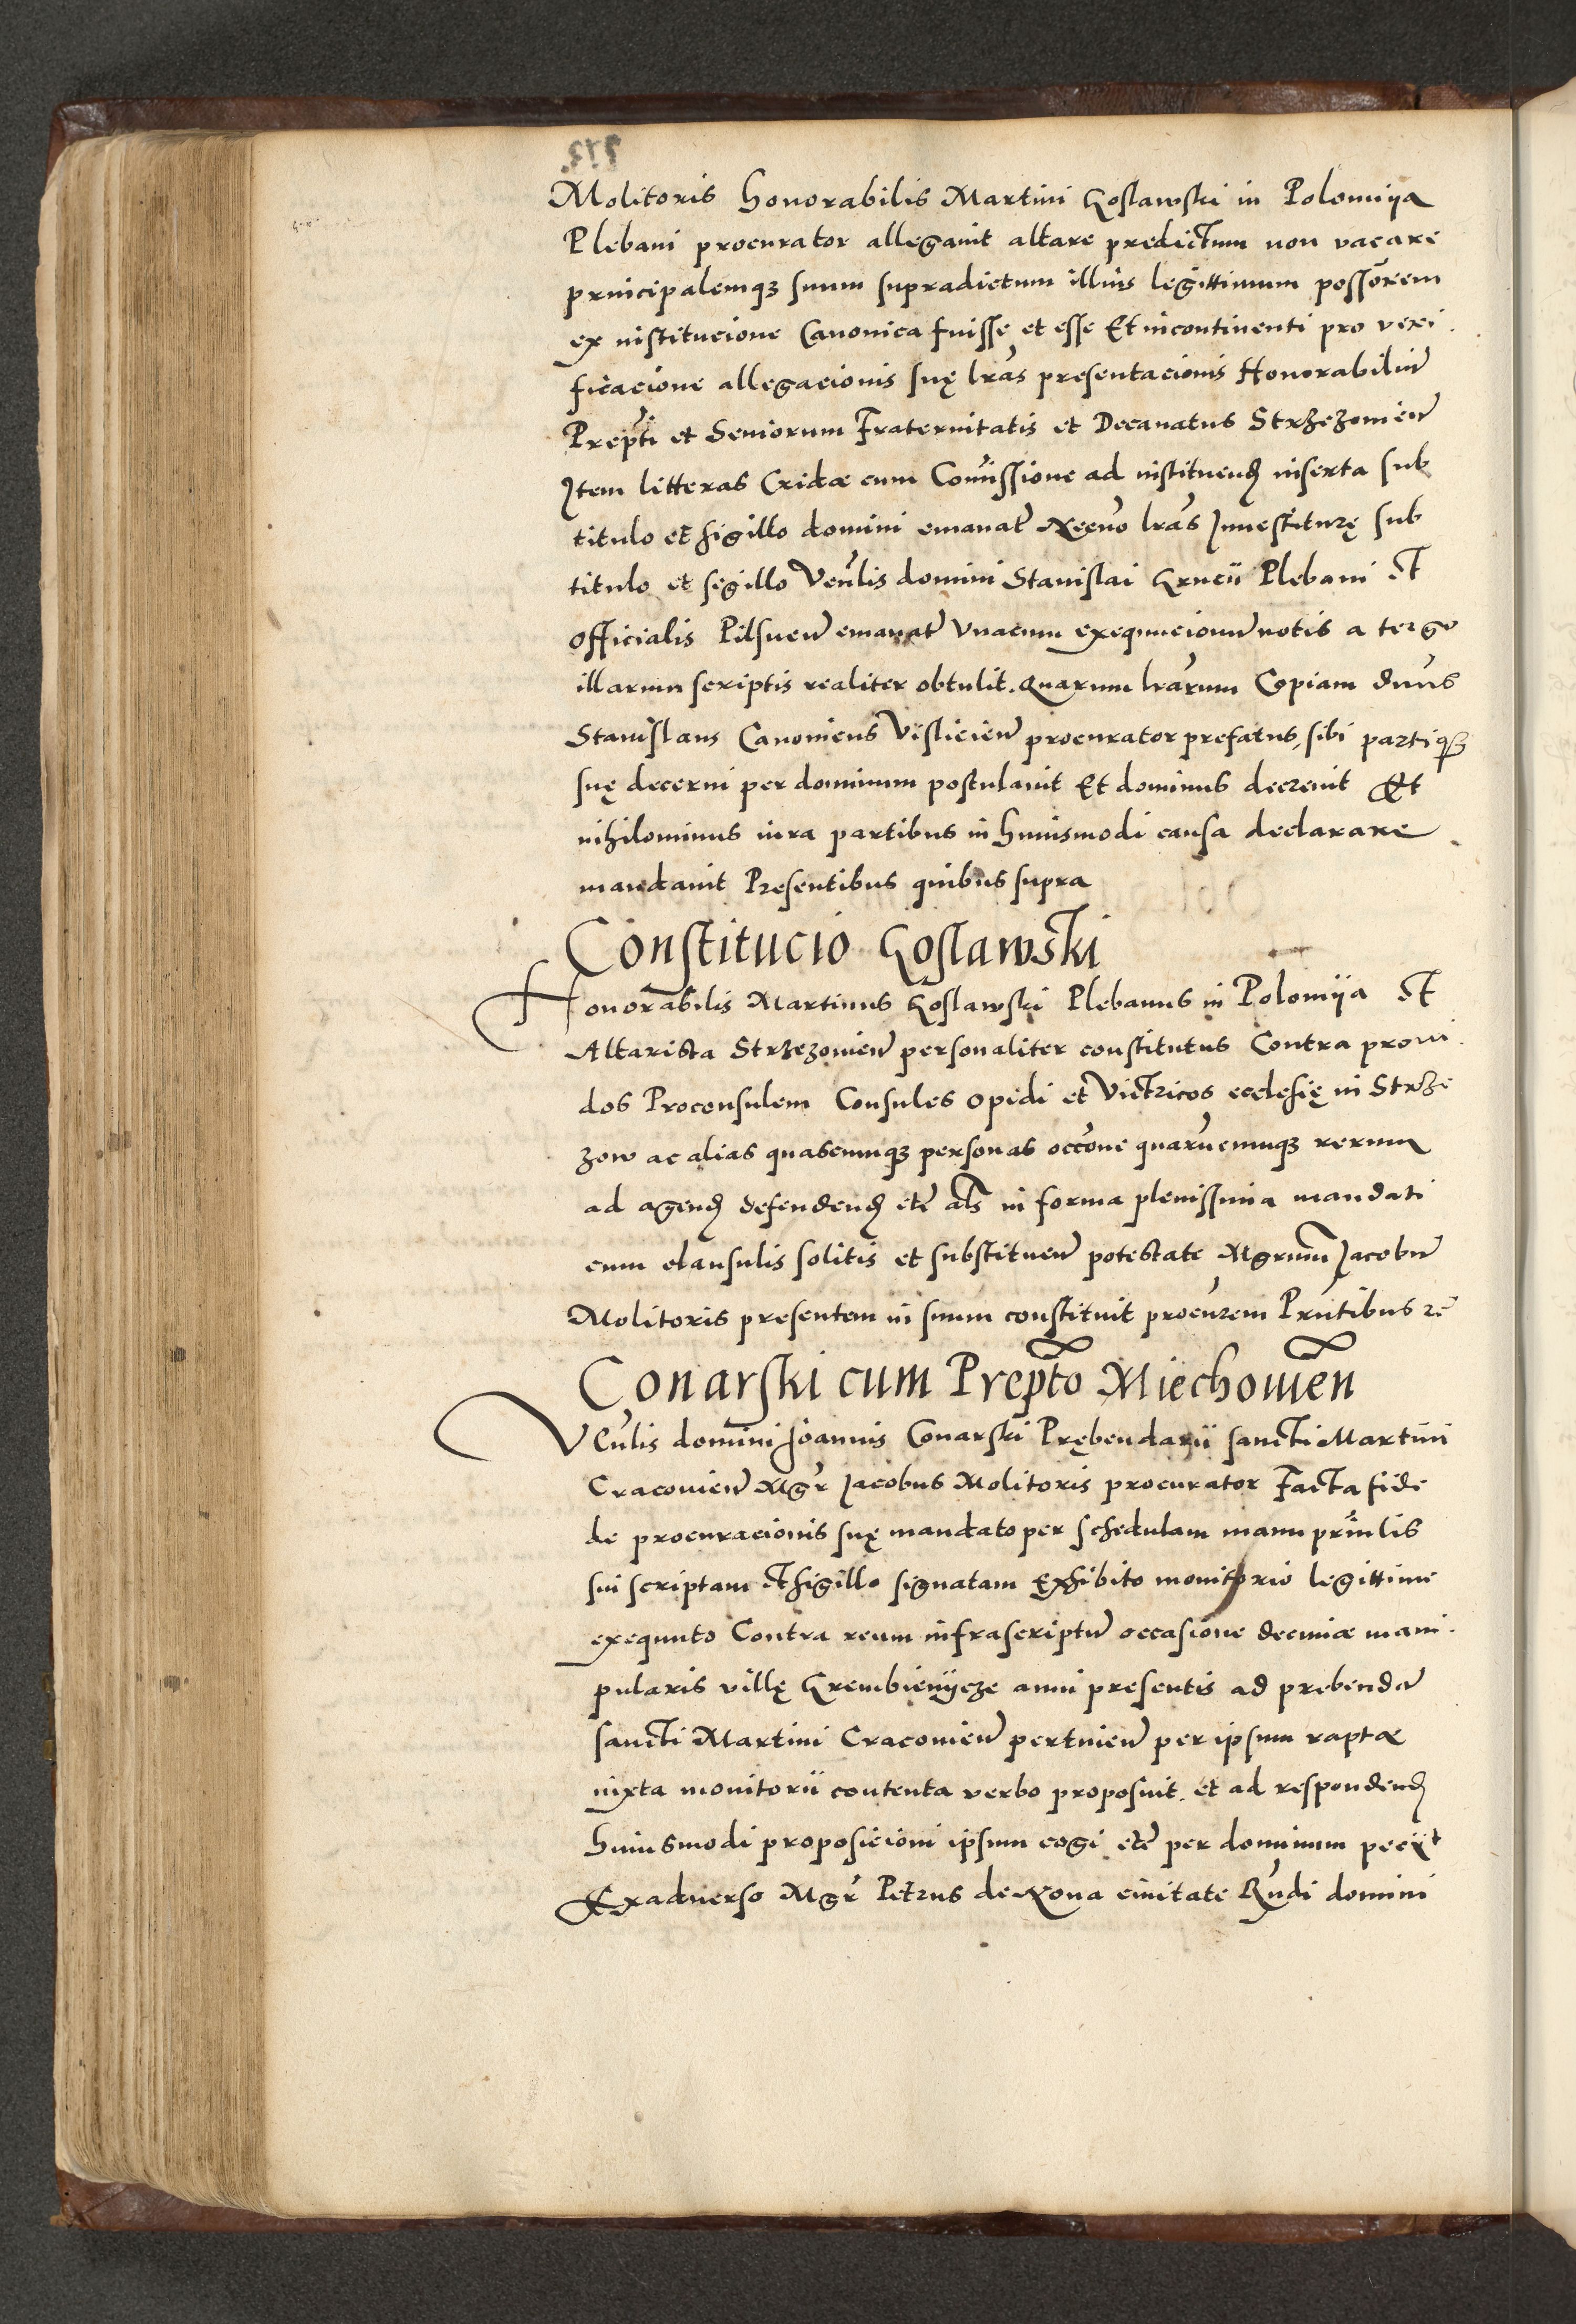 Molitoris honorabilis Martini Goslawski in Polomija
Plebani procurator allegauit altare predictum non vacare
principalemqz suum supradictum illius legittimum possōrem
ex institucione Canonica fuisse et esse Et incontinenti pro veri
ficacione allegacionis suę lrās presentacionis Honorabiliū
Prepti et Seniorum Fraternitatis et Decanatus Strzezouien̄
Item litteras Cridæ cum Comissione ad instituend inserta sub
titulo et sigillo domini emanat̄ Necno lrās Inuestiturę sub
titulo et segillo Venlis domini Stanislai Grucii Plebani et
officialis Pilsnen̄ emanat̄ Vnacum exequucionū notis a tergo
illarum scriptis realiter obtulit. Quarum lrārum Copiam dnūs
Stanislaus Canonicus Vislicien̄ procurator prefatus, sibi partiqz
suę decerni per dominum postulauit Et dominus decreuit Et
nihilominus iura partibus in huiusmodi causa declarare
mandauit Presentibus quibus supra
Constitucio Goslawski
Honorabilis Martinus Goslawski Plebanus in Polomija et
Altarista Strzezouien̄ personaliter constitutus Contra proui
dos Proconsulem Consules opidi et Victricos ecclesię in Strze
zow ac alias quascumqz personas occone quarucumqz rerum
ad agend defendend etc̄ als in forma plenissima mandati
cum clausulis solitis et substituen̄ potestate Mgrum Jacobū
Molitoris presentem in suum constituit procurem Prntibus
Conarski cum Prepto Miechouien
VEnlis domini Joannis Conarski Prębendarii sancti Martini
Cracouien̄ Mgr Jacobus Molitoris procurator Facta fide
de procuracionis suę mandato per schedulam manu prinlis
sui scriptam et sigillo signatam Exhibito monitorio legittime
exequuto Contra reum infrascriptū occasione decimæ mani
pularis villę Grembienijcze anni presentis ad prebendā
sancti Martini Cracouien̄ pertinen̄ per ipsum raptæ
iuxta monitorii contenta verbo proposuit. et ad respondend
huiusmodi proposicioni ipsum cogi etc̄ per dominum peciit
Exaduerso Mgr Petrus de Noua ciuitate Rndi domini